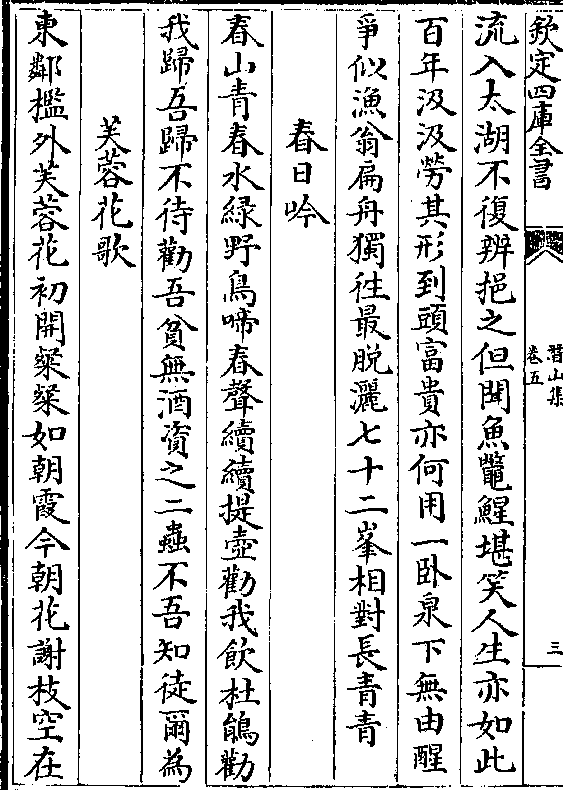 欽定四庫全書
潛山集
卷五
三
流入太湖不復辨挹之但聞魚鼈鯹堪笑人生亦如此
百年汲汲勞其形到頭富貴亦何用一卧泉下無由醒
爭似漁翁扁舟獨往最脱灑七十二峯相對長青青
春日吟
春山青春水緑野鳥啼春聲續續提壺勸我飲杜鵑勸
我歸吾歸不待勸吾貧無酒資之二蟲不吾知徒爾為
芙蓉花歌
東鄰檻外芙蓉花初開粲粲如朝霞今朝花謝枝空在